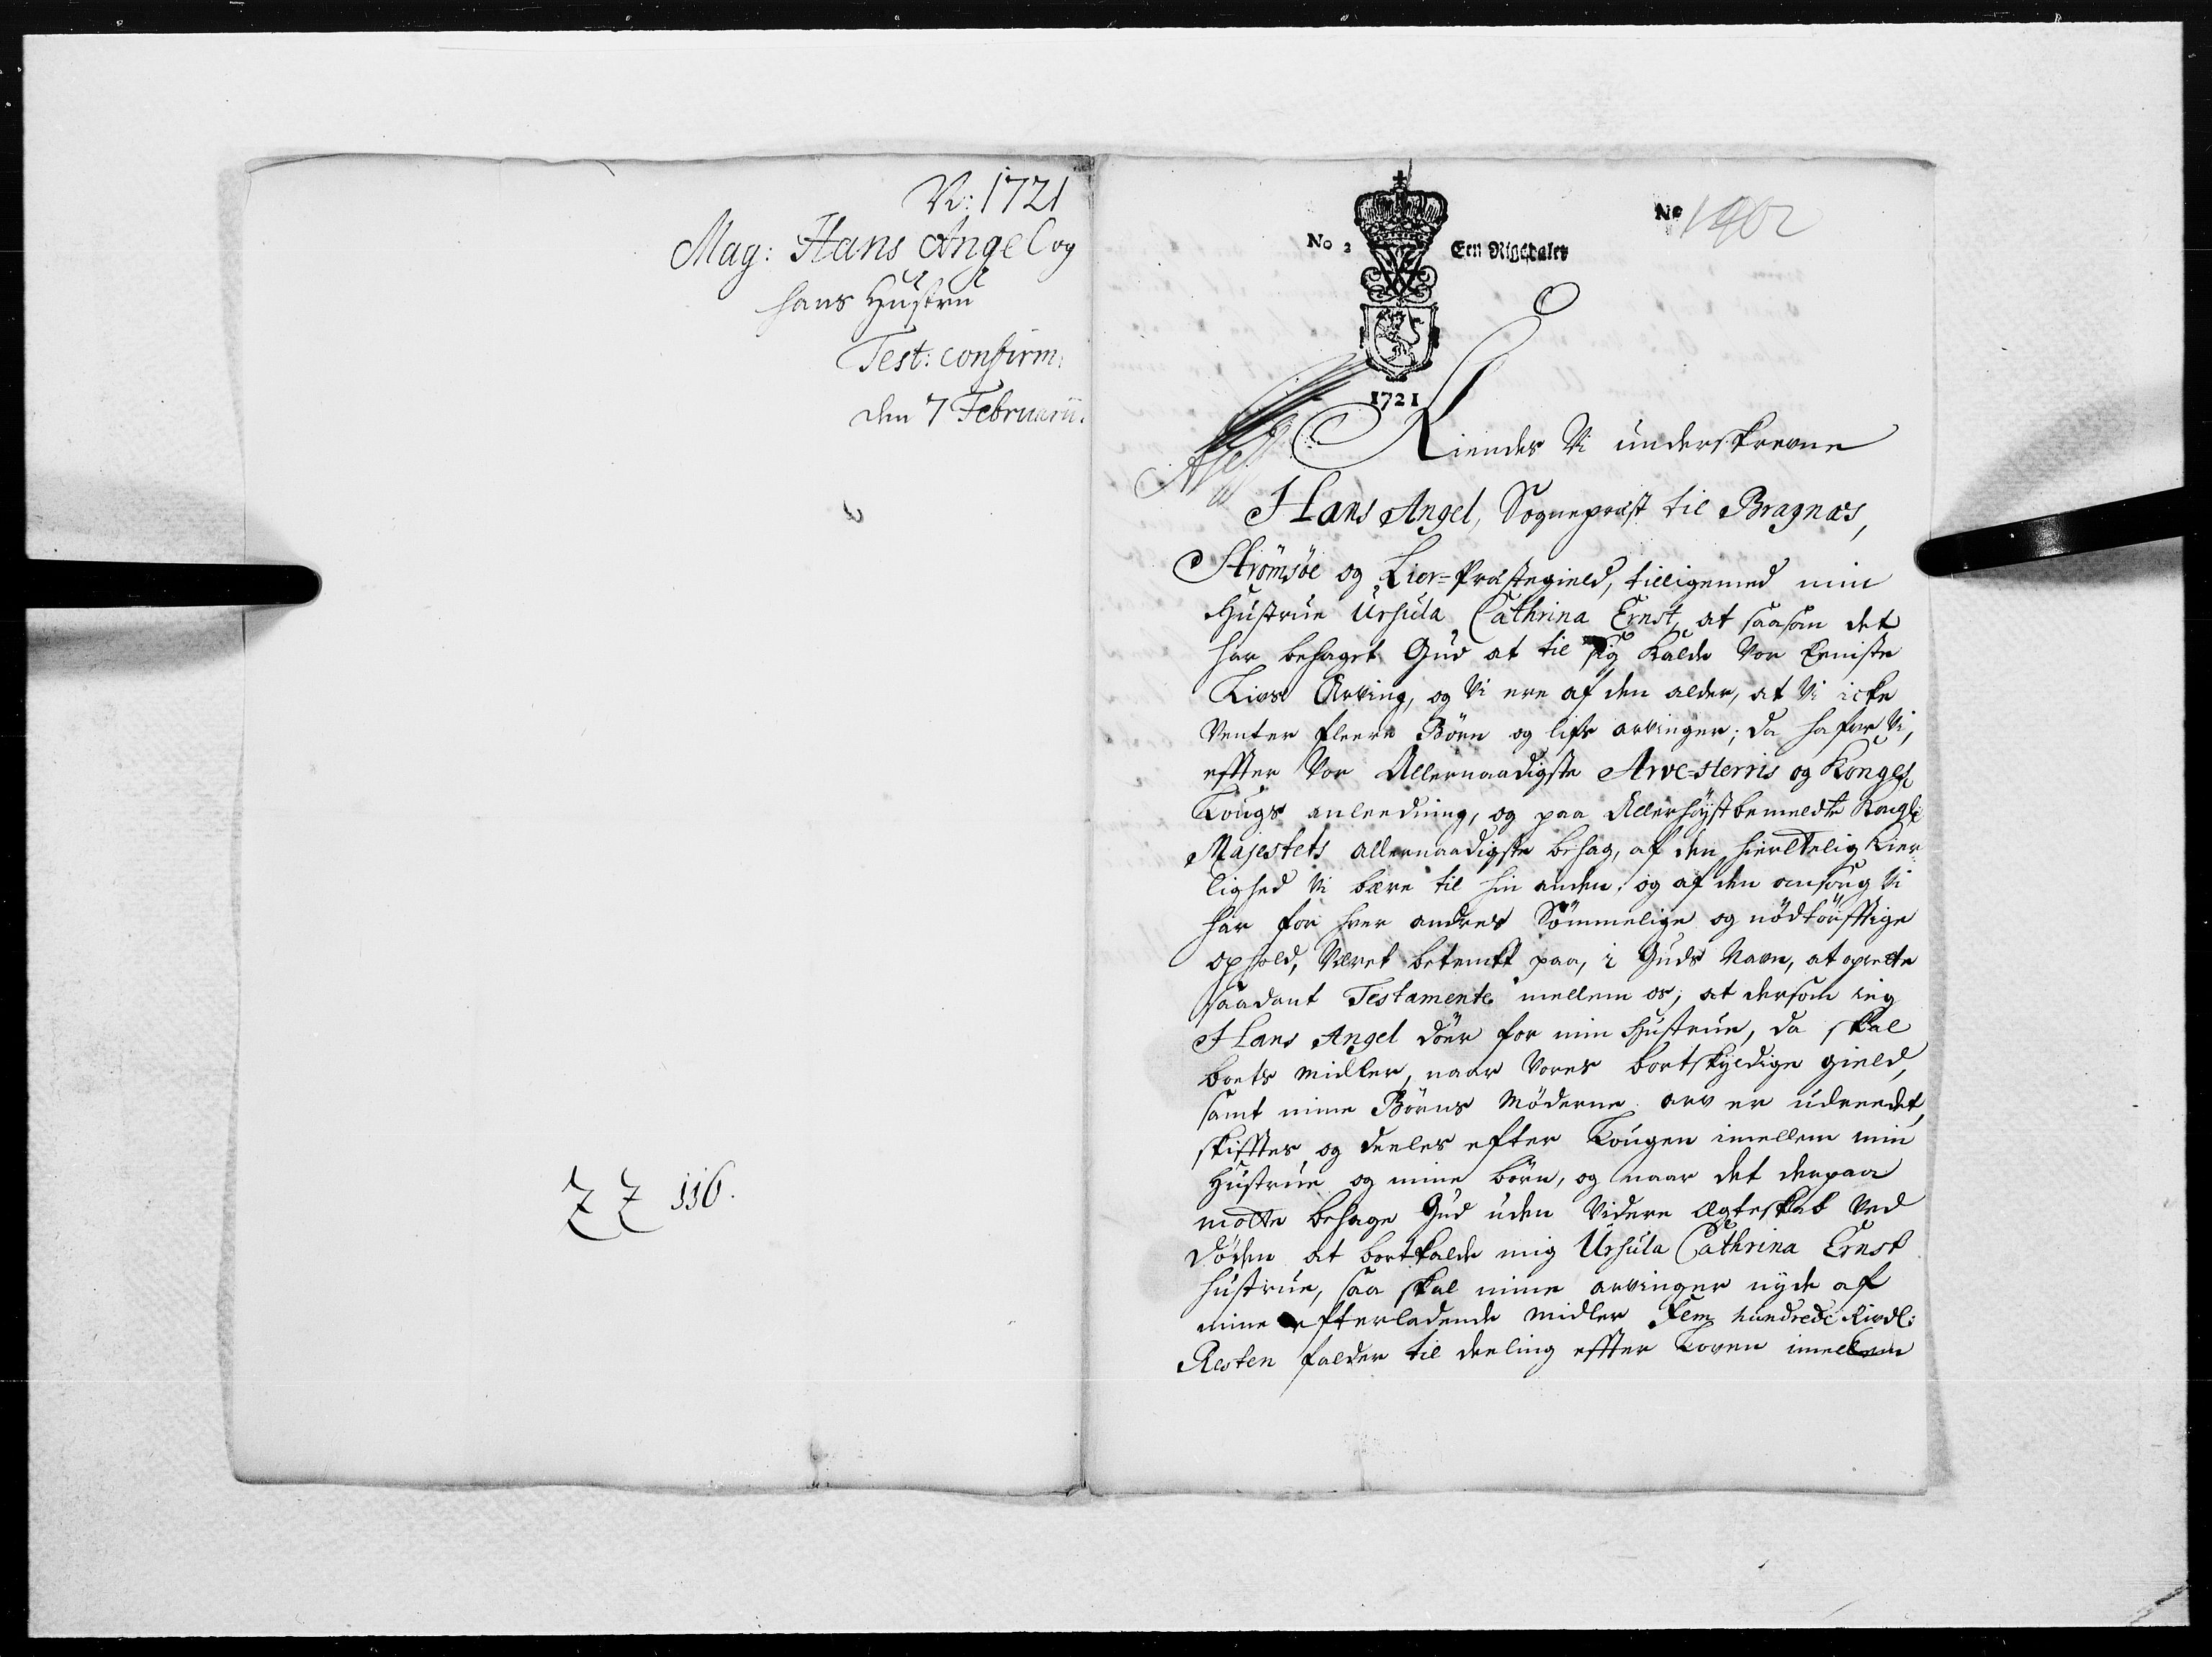 N: 1721
Mag: Hans Angel og
hans Hustru
Test: confirm:
den 7 Februarii.
ZZ 116.
No 2
Een Rigsdaler
No 1402
1721
Kiendes Vi underskrevne
Hans Angel, Sognepræst til Bragnæs,
Strømsøe og Lier-Præstegield, tilligemed min
Hustrue Ursula Cathrina Ernst, at saasom det
har behaget Gud at til sig Kalde Vor Eeniste
Livs Arving, og Vi ere af den alder, at Vi icke
Venter fleere Børn og lifs arvinger; da hafver Vi,
effter Vor Allernaadigste Arve-Herris og Konges
Lougs anleedning, og paa Allerhøystbemeldte Kongl:
Majestets allernaadigste behag, af den hiertelig Kier-
lighed Vi bære til hin anden, og af den omsorg Vi
har for hver andres Sømmelige og nødtørfftige
ophold, Været betænckt paa, i Guds Navn, at oprette
saadant Testamente mellem os, at dersom ieg
Hans Angel døer for min Hustrue, da skal
boets midler, naar Vores bortskyldige gield,
samt mine Børns Møderne arv er udreedet,
skifftes og deeles efter Lougen imellem min
Hustrue og mine børn, og naar det derpaa
motte behage Gud uden Videre Ægteskab Ved
Døden at bortkalde mig Ursula Cathrina Ernst
hustrue, saa skal mine arvinger nyde af
mine efterladende midler Fem hundrede Rixdl:
Resten falder til deeling effter Loven imellem